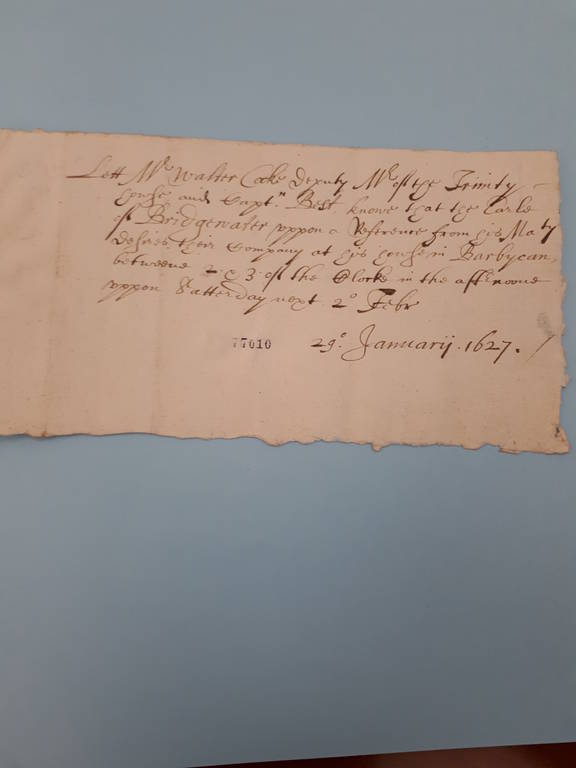 Lett Mr Walter Cooke Deputy Mr of the Trinity
house and Capt.n Best, knowe that the Earle
of Bridgewater uppon a Reference from his Maty
desires their Company at his house in Barbycan,
betweene 2. & 3. of the Clocke in the afternoone
uppon Satterday next 2o Febr
77010 29o. Januarij. 1627. /